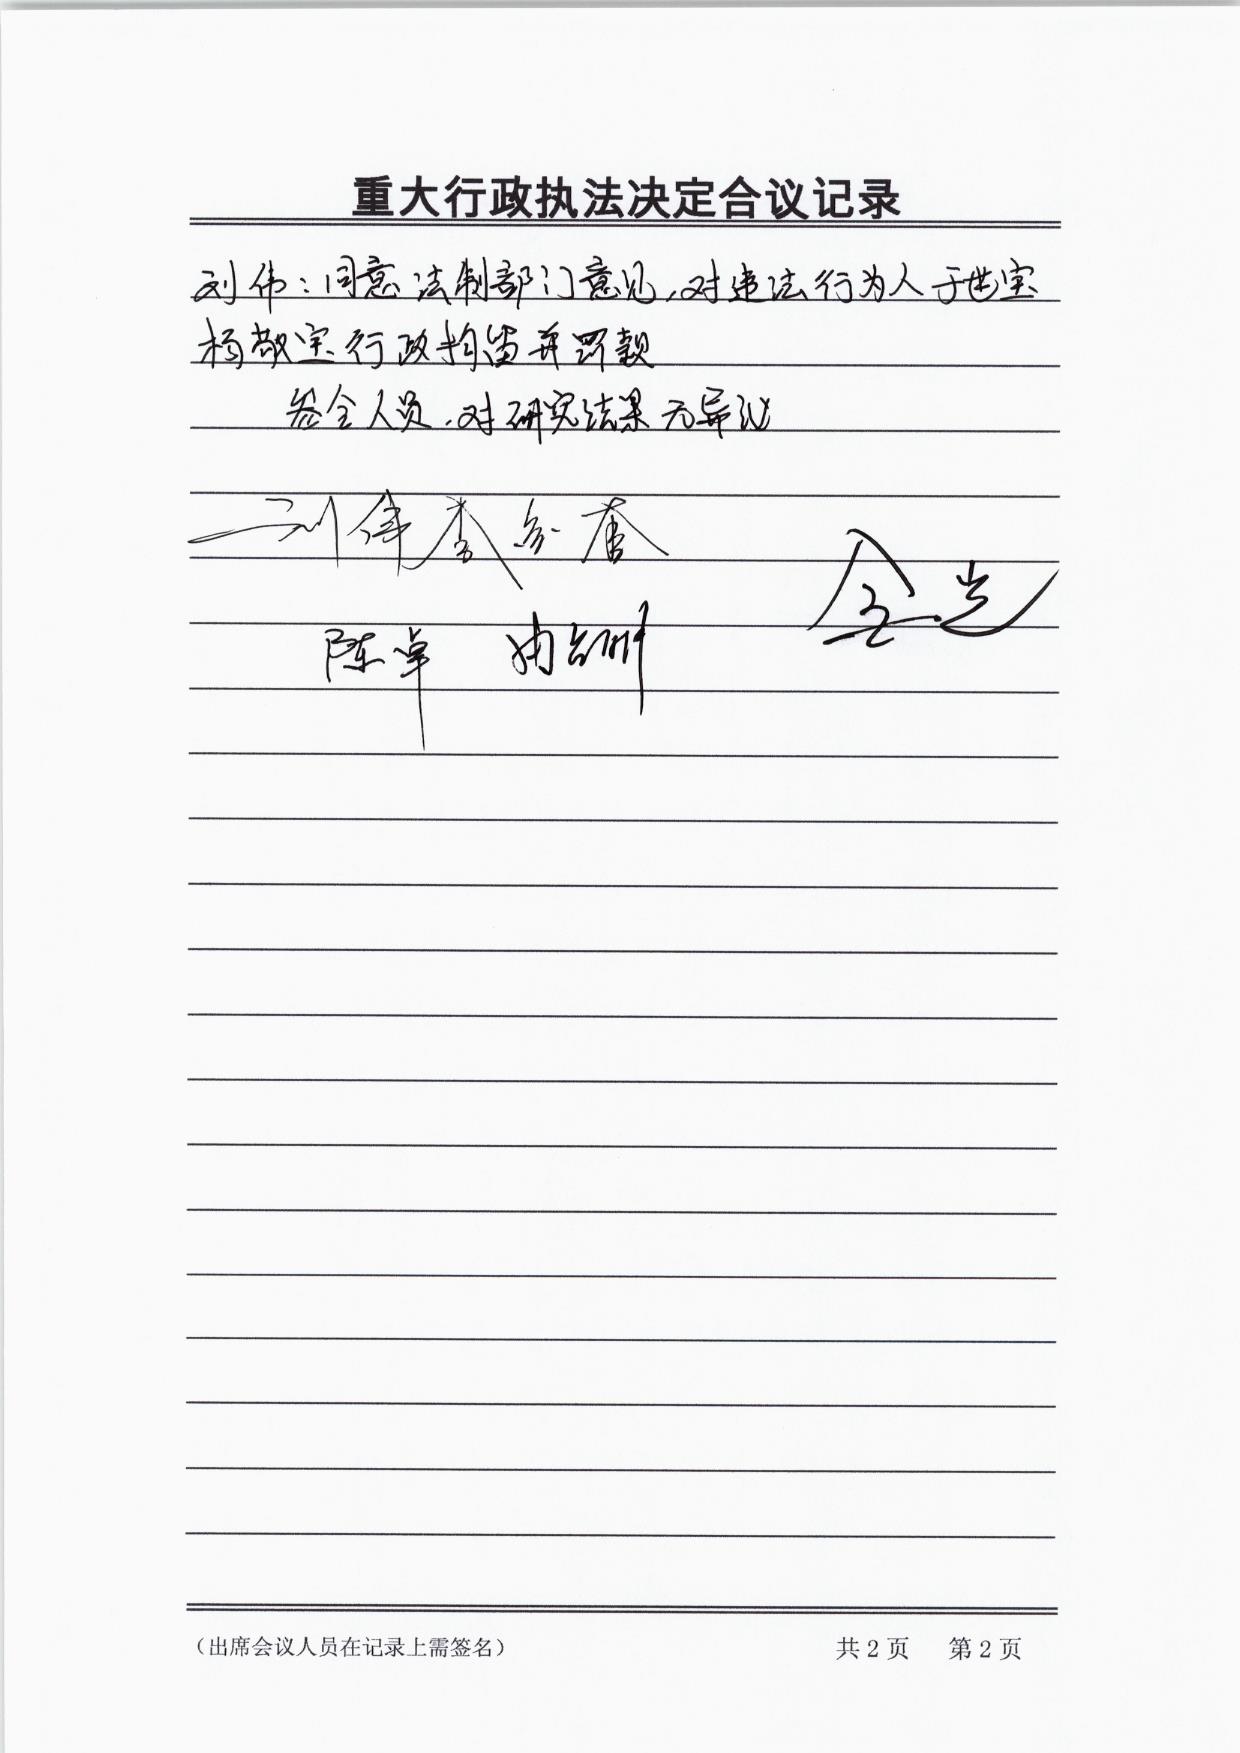 重大行政执法决定合议记录
刘伟：同意法制部门意见，对违法行为人于世宝
杨敬宝行政拘留并罚款
参会人员，对研究结果无异议
刘伟
陈卓
（出席会议人员在记录上需签名）
共2页 第2页